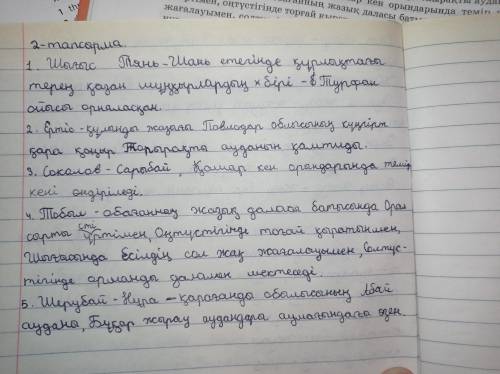 ртімен, оңтүстігінде торғай қырат
жағалауымен, солт
2-тапсырма.
1. Шығыс Тянь-Шань етегінде құрлықтағы
терең қазан шұңқырлардың бірі - Турфан
ойысы орналасқан.
2. Ертіс-құлынды жазығы Павлодар облысының күңгірт
қара қоңыр Топырақты ауданын қамтиды.
3. Соколов-Сарыбай, Қашар кен орандарында темір
кені өндіріледі.
4. Тобыл-обағанның жазық даласы батысында Орал
сырты үстіртімен, Оңтүстігінде тоғай қыратымен,
Шығысында Есілдің сол жақ жағалауымен, солтүс-
тігінде орманды даламен шектеседі.
5. Шерубай-Нұра - қарағанды обылысының Абай
ауданы, Бұқар жырау аудандара аумағындағы өзен.